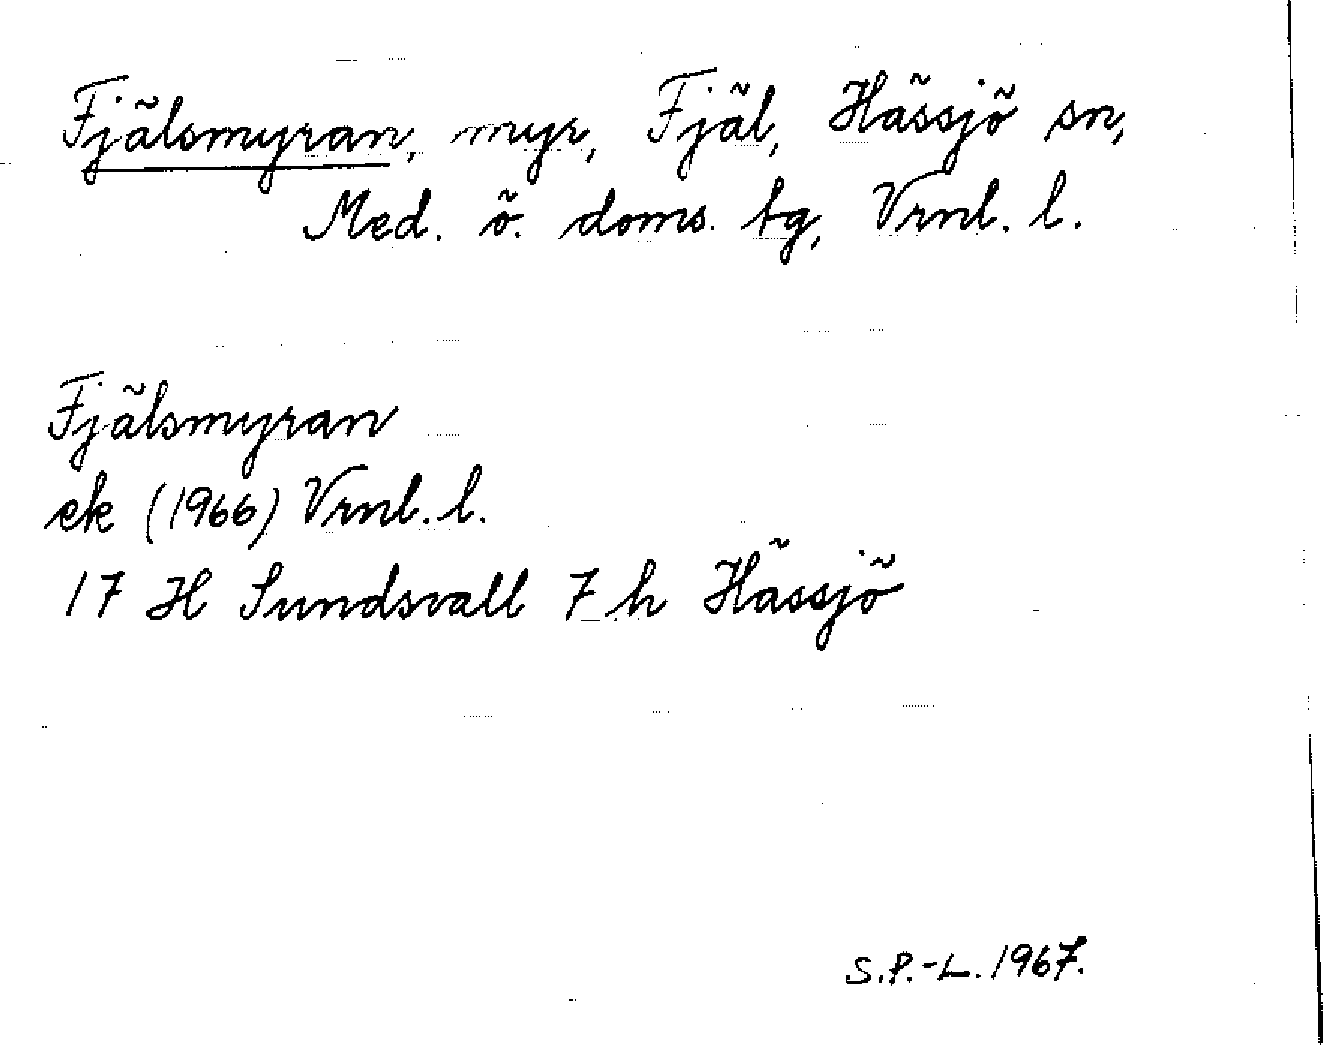 Fjälsmyran, myr, Fjäl, Hässjö sn,
Med. ö. doms. tg, Vrnl. l.
Fjälsmyran
ek (1966) Vrnl. l.
17 H Sundsvall 7 h Hässjö
S.P.-L. 1967.